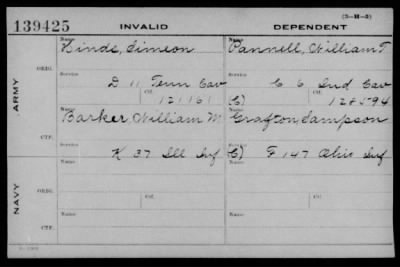 139425 INVALID DEPENDENT (3-H-3)
Name Name
Hinds, Simeon Pannell, William T
ORIG.
Service Service
D 11 Tenn Cav C 6 Ind Cav
Ctf. Ctf.
121161 C) 128594
ARMY
Name Name
Barker, William M Grafton, Sampson
Service Service
CTF. K 37 Ill Inf C) F 147 Ohio Inf
Name Name
ORIG.
Service Ctf. Service Ctf.
NAVY
Name Name
CTF.